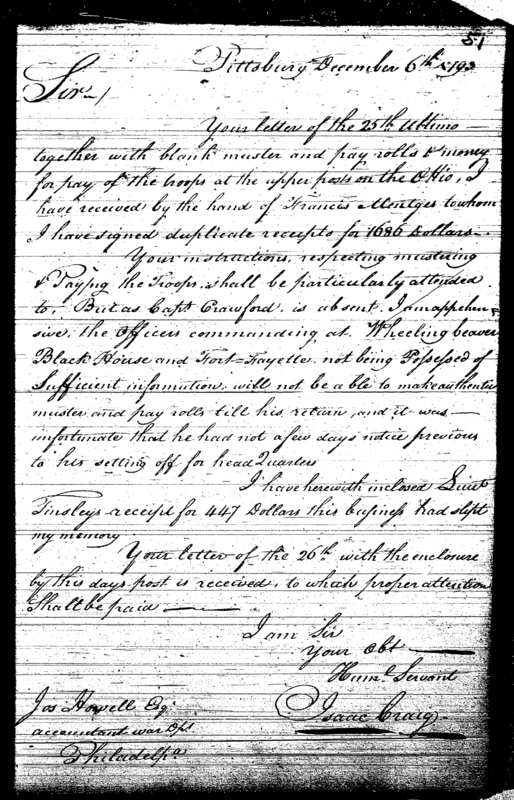 51
Pittsburg December 6th 1793
Sir /
Your letter of the 25th Ultimo
together with blank muster and pay rolls & money
for pay of the troops at the upper posts on the Ohio, I
have received by the hand of Francis Mentges to whom
I have signed duplicate receipts for 1686 Dollars.
Your instructions, respecting mustering
& Paying the Troops, shall be particularly attended
to, But as Capt. Crawford, is absent, I am apprehen
sive, the officers commanding at Wheeling beaver
Black House and Fort-Fayette, not being Possessed of
Sufficient information, will not be able to make authentic
muster and pay rolls till his return, and it was
unfortunate that he had not a few days notice previous
to his setting off for head Quarters
I have herewith inclosed Lieut
Tinsleys receipt for 447 Dollars this business had slipt
my memory
Your letter of the 26th with the enclosure
by this days post is received, to which proper attention
Shall be paid
I am Sir
Your Obt
Huml. Servant
Isaac Craig
Jos Howell Esqr
accountant war Dpt.
Philadelpa